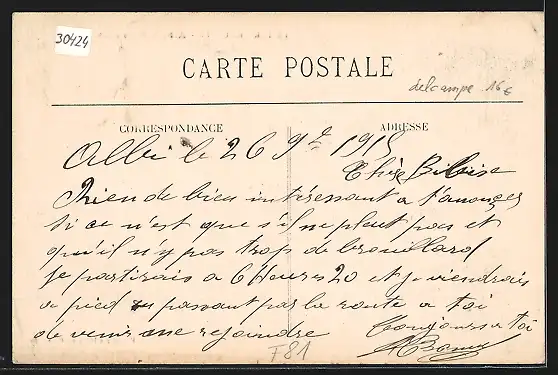 30424
CARTE POSTALE
delcampe 16€
CORRESPONDANCE
ADRESSE
Albi le 26 9bre 1915
Chère
Rien de bien intéressant a t'anoncer
si ce n'est que s'il ne pleut pas et
qu'il n'y pas trop de brouillard
je partirais a 6 Heures 20 et je viendrais
a pied en passant par la route a toi
de venir me rejoindre
Toujours a toi
F81